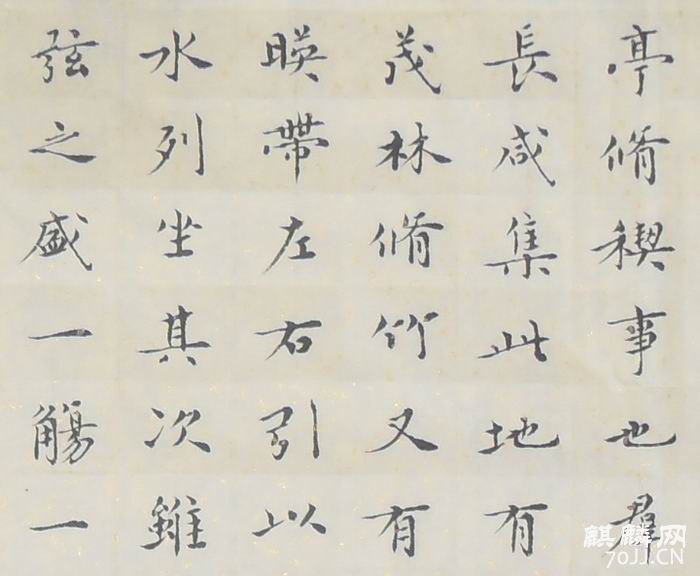 亭脩稧事也羣
長咸集此地有
茂林脩竹又有
暎帶左右引以
水列坐其次雖
弦之盛一觴一
麒麟网
70JJ.CN